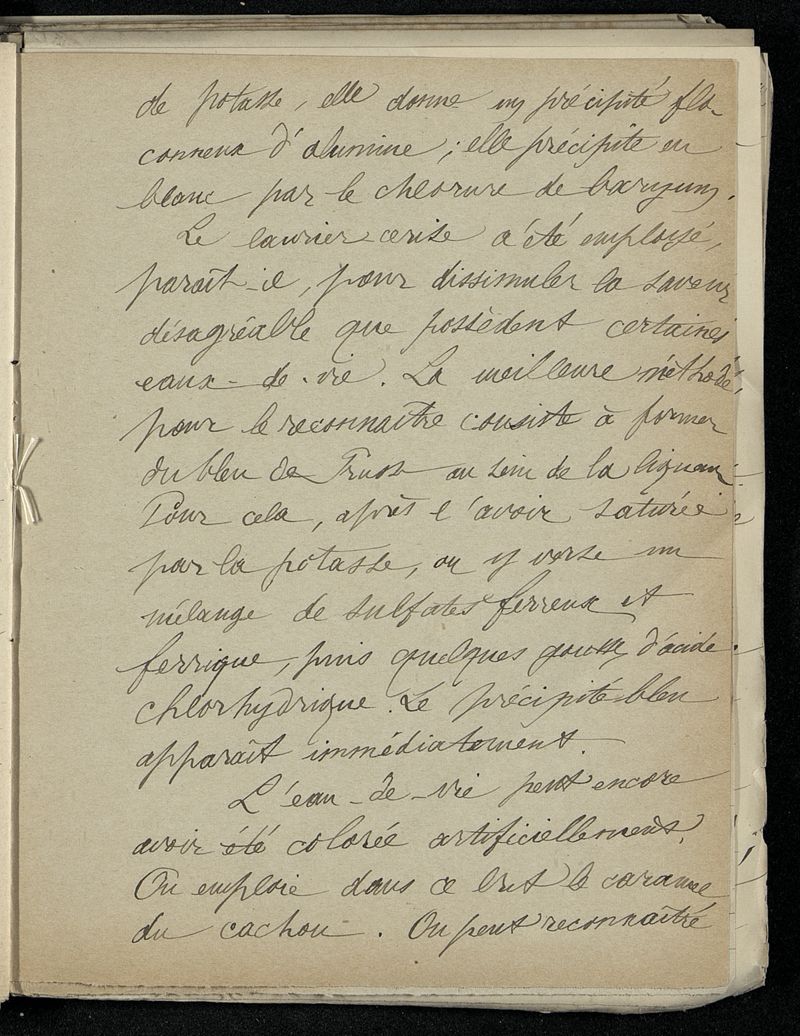 de potasse, elle donne un précipité flo-
conneux d'alumine ; elle précipite en
blanc par le chlorure de baryum.
Le laurier-cerise a été employé,
paraît-il, pour dissimuler la saveur
désagréable que possèdent certaines
eaux-de-vie. La meilleure méthode,
pour le reconnaître consiste à former
du bleu de Prusse au sein de la liqueur.
Pour cela, après l'avoir saturée
par la potasse, on y verse un
mélange de sulfates ferreux et
ferrique, puis quelques gouttes d'acide
chlorhydrique. Le précipité bleu
apparaît immédiatement.
L'eau-de-vie peut encore
avoir été colorée artificiellement.
On emploie dans ce but le caramel
du cachou. On peut reconnaître